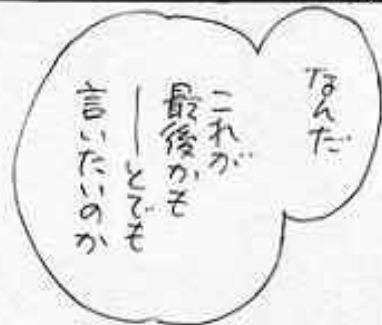 なんだ
これが
最後かも
──とでも
言いたいのか